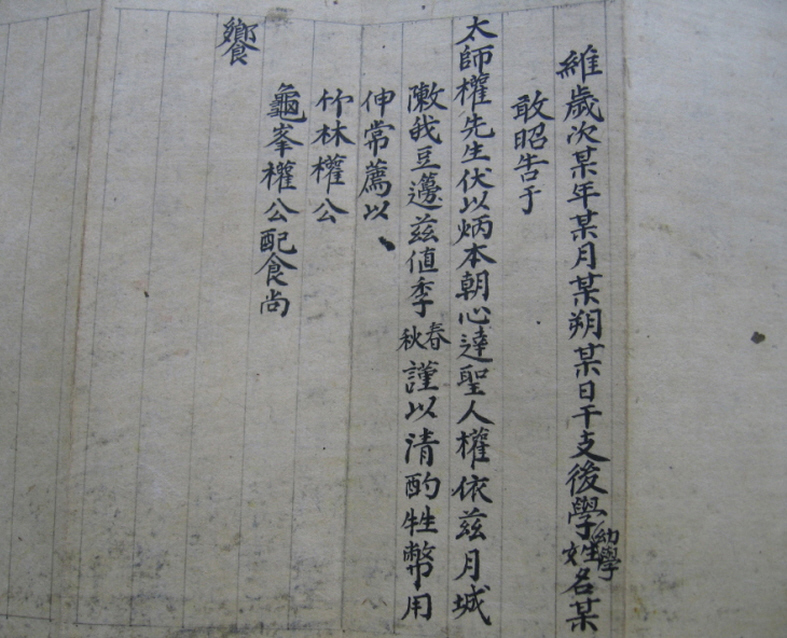 維歲次某年某月某朔某日干支後學幼學姓名某
敢昭告于
太師權先生伏以炳本朝心達聖人權依茲月城
陳我豆邊茲值季春秋謹以清酌牲幣用
伸常薦以
竹林權公
龜峯權公配食尚
饗